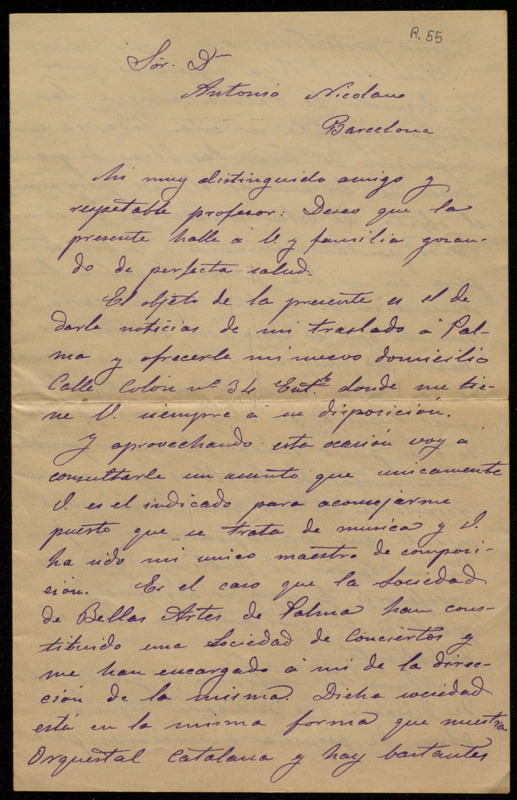 R. 55
Sór. Dn
Antonio Nicolau
Barcelona
Mi muy distinguido amigo y
respetable profesor: Deseo que la
presente halle á U. y familia gozan-
do de perfecta salud.
El objeto de la presente es el de
darle noticias de mi traslado á Pal-
ma y ofrecerle mi nuevo domicilio
Calle Colón nº 34 Entlo donde me tie-
ne U. siempre á su disposición.
Y aprovechando esta ocasión voy á
consultarle un asunto que unicamente
U. es el indicado para aconsejarme
puesto que se trata de musica y U.
ha sido mi unico maestro de composi-
ción. Es el caso que la Sociedad
de Bellas Artes de Palma han cons-
tituido una Sociedad de Conciertos y
me han encargado á mi de la direc-
ción de la misma. Dicha sociedad
está en la misma forma que nuestra
Orquestal Catalana y hay bastantes